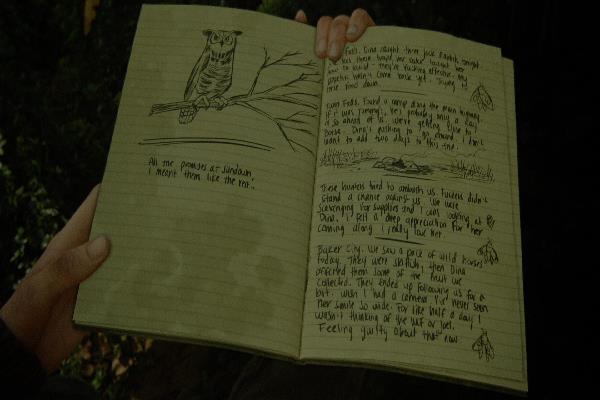 All me promises at sundown,
I meant them like the rest..
Falls. Dina caught three jack rabbits tonight.
traps. Jesse taught her
how to build - they're fucking effective. My
appetite hasn't come back yet. Trying to
force food down.
Twin Falls. Found a camp along the main highway.
If it was Tommy's, he's probably only a day
or so ahead of us. We're getting close to
Boise. Dina's pushing to go around. I don't
want to add two days to this trip.
These hunters tried to ambush us. Fuckers didn't
stand a chance against us. We were
scavenging for supplies and I was looking at
Dina. I felt a deep appreciation for her
coming along. I really love her.
Baker City. We saw a pack of wild horses
today. They were skittish, then Dina
offered them some of the fruit we
collected. They ended up following us for a
bit. Wish I had a camera. I've never seen
her smile so wide. For like half a day I
wasn't thinking of the WLF or Joel.
Feeling guilty about that now